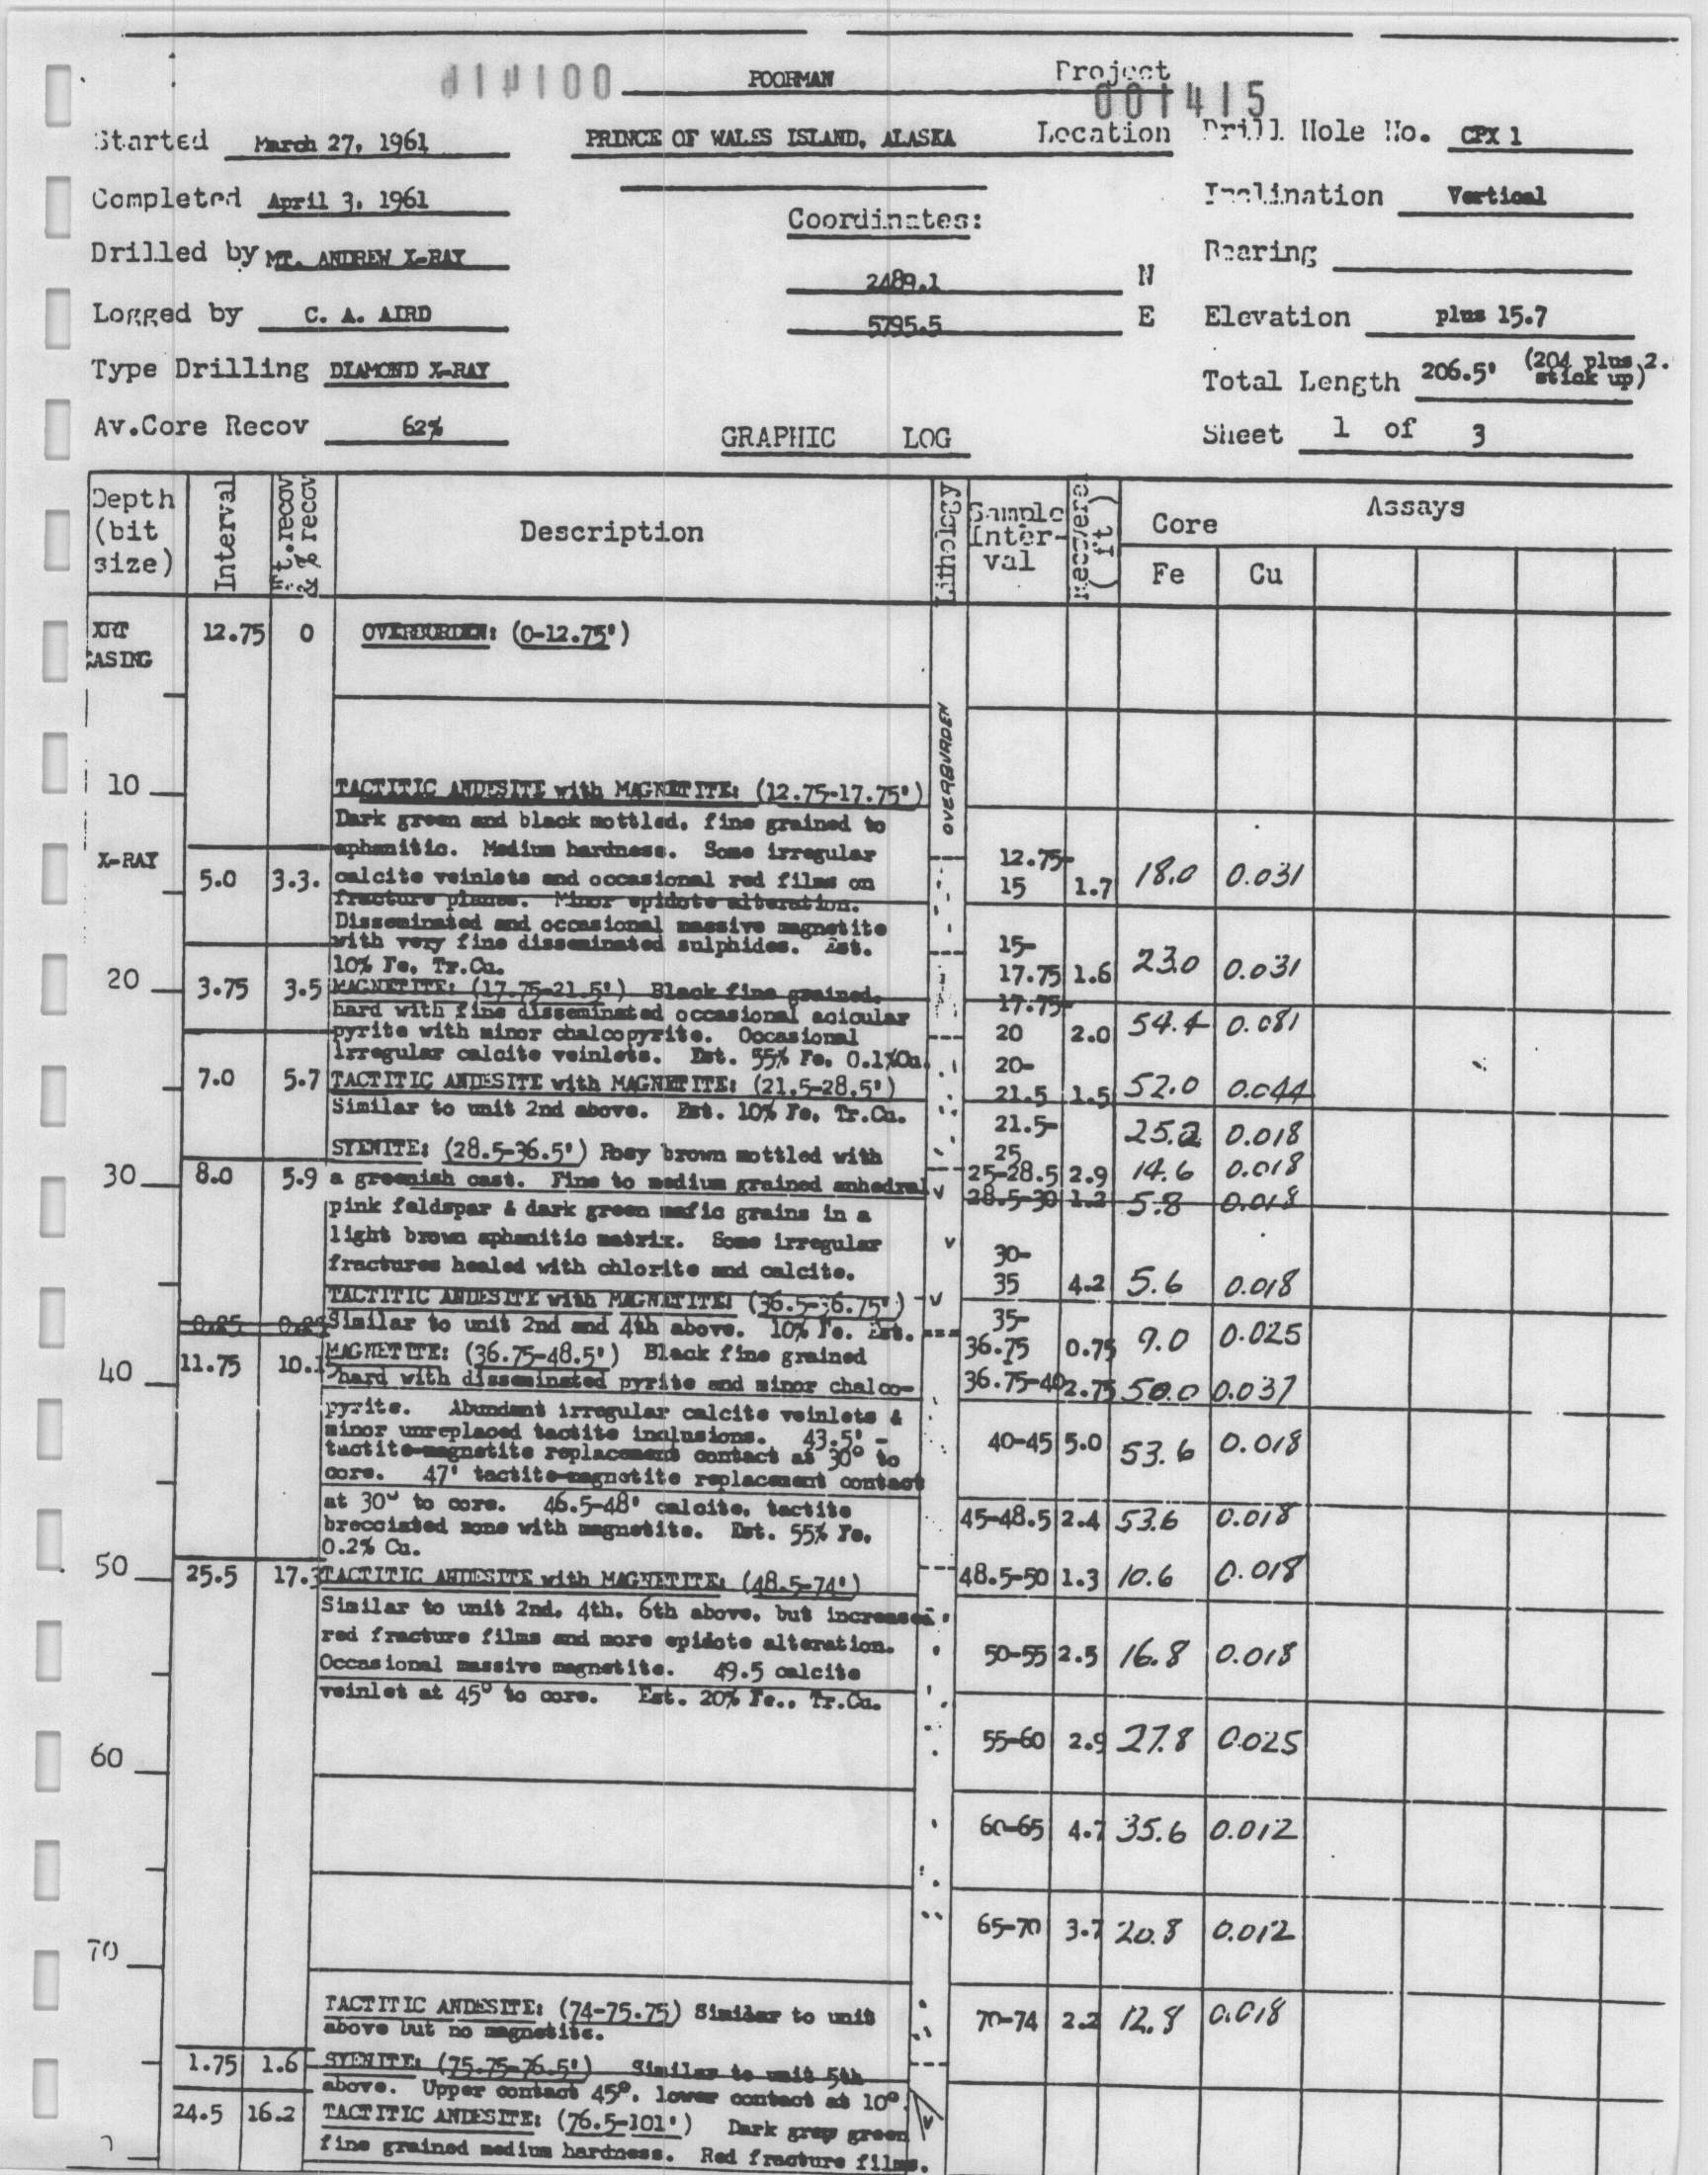 POORMAN Project
001415
Started March 27, 1961 PRINCE OF WALES ISLAND, ALASKA Location Drill Hole No. CPX 1
Completed April 3, 1961 Inclination Vertical
Coordinates:
Drilled by MT. ANDREW X-RAY Bearing
2489.1 N
Logged by C. A. AIRD 5795.5 E Elevation plus 15.7
Type Drilling DIAMOND X-RAY Total Length 206.5' (204 plus 2.
stick up)
Av.Core Recov 62% GRAPHIC LOG Sheet 1 of 3
Depth (bit size) Interval Ft.recov & % recov Description Lithology Sample Inter-val Recovered (ft) Core Assays
Fe Cu
XRT 12.75 0 OVERBURDEN: (0-12.75')
CASING
OVERBURDEN
10 TACTITIC ANDESITE with MAGNETITE: (12.75-17.75')
Dark green and black mottled, fine grained to
X-RAY aphanitic. Medium hardness. Some irregular 12.75-
5.0 3.3. calcite veinlets and occasional red films on 15 1.7 18.0 0.031
fracture planes. Minor epidote alteration.
Disseminated and occasional massive magnetite
with very fine disseminated sulphides. Est. 15-
10% Fe, Tr.Cu. 17.75 1.6 23.0 0.031
20 3.75 3.5 MAGNETITE: (17.75-21.5') Black fine grained, 17.75-
hard with fine disseminated occasional acicular
pyrite with minor chalcopyrite. Occasional 20 2.0 54.4 0.081
irregular calcite veinlets. Est. 55% Fe, 0.1%Cu. 20-
7.0 5.7 TACTITIC ANDESITE with MAGNETITE: (21.5-28.5') 21.5 1.5 52.0 0.044
Similar to unit 2nd above. Est. 10% Fe, Tr.Cu. 21.5-
25 25.2 0.018
SYENITE: (28.5-36.5') Rosy brown mottled with
30 8.0 5.9 a greenish cast. Fine to medium grained anhedral 25-28.5 2.9 14.6 0.018
pink feldspar & dark green mafic grains in a 28.5-30 1.2 5.8 0.018
light brown aphanitic matrix. Some irregular 30-
fractures healed with chlorite and calcite. 35 4.2 5.6 0.018
TACTITIC ANDESITE with MAGNETITE: (36.5-36.75')
Similar to unit 2nd and 4th above. 10% Fe. Est. 35-
36.75 0.75 9.0 0.025
40 11.75 10.1 MAGNETITE: (36.75-48.5') Black fine grained
hard with disseminated pyrite and minor chalco- 36.75-40 2.75 50.0 0.037
pyrite. Abundant irregular calcite veinlets &
minor unreplaced tactite inclusions. 43.5' - 40-45 5.0 53.6 0.018
tactite-magnetite replacement contact at 30° to
core. 47' tactite-magnetite replacement contact
at 30° to core. 46.5-48' calcite, tactite 45-48.5 2.4 53.6 0.018
brecciated zone with magnetite. Est. 55% Fe,
0.2% Cu.
50 25.5 17.3 TACTITIC ANDESITE with MAGNETITE: (48.5-74') 48.5-50 1.3 10.6 0.018
Similar to unit 2nd, 4th, 6th above, but increased
red fracture films and more epidote alteration. 50-55 2.5 16.8 0.018
Occasional massive magnetite. 49.5 calcite
veinlet at 45° to core. Est. 20% Fe., Tr.Cu.
60 55-60 2.9 27.8 0.025
60-65 4.7 35.6 0.012
65-70 3.7 20.8 0.012
70
TACTITIC ANDESITE: (74-75.75) Similar to unit 70-74 2.2 12.8 0.018
above but no magnetite.
1.75 1.6 SYENITE: (75.75-76.5') Similar to unit 5th
above. Upper contact 45°, lower contact at 10°.
24.5 16.2 TACTITIC ANDESITE: (76.5-101') Dark gray green
fine grained medium hardness. Red fracture films.